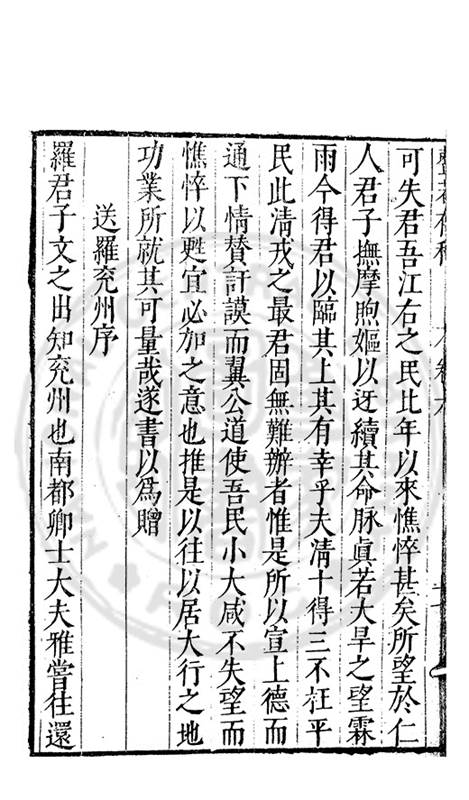 可失君吾江右之民比年以來憔悴甚矣所望於仁
人君子撫摩喣嫗以迓續其命脉眞若大旱之望霖
雨今得君以臨其上其有幸乎夫清十得三不枉平
民此清戎之最君固無難辦者惟是所以宣上德而
通下情賛訏謨而翼公道使吾民小大咸不失望而
憔悴以甦宜必加之意也推是以往以居大行之地
功業所就其可量哉遂書以爲贈
送羅兖州序
羅君子文之出知兖州也南都卿士大夫雅嘗往還